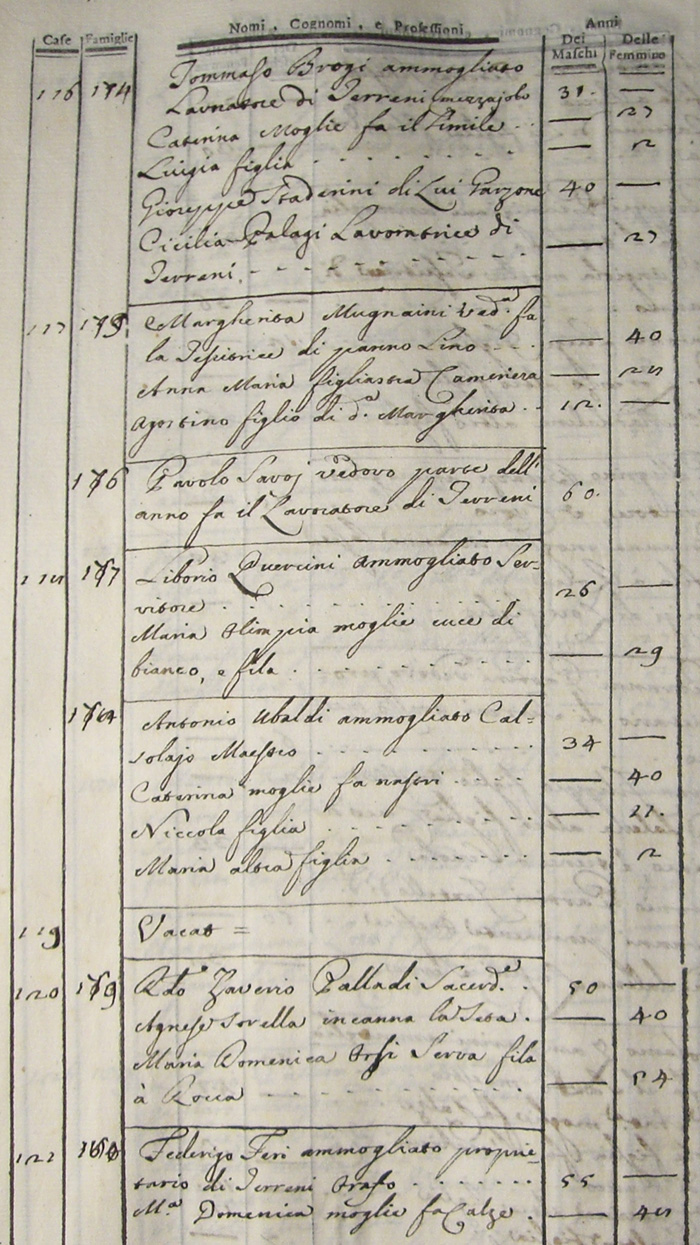 Case Famiglie Nomi, Cognomi, e Professioni Anni
Dei Maschi Delle Femmine
116 174 Tommaso Brogi ammogliato
Lavoratore di Terreni mezzajolo 31. —
Caterina Moglie fa il Simile — 27
Luigia figlia — 2
Giuseppe Staderini di Lui Garzone 40 —
Cicilia Palagi Lavoratrice di
Terreni — 27
117 175 Margherita Mugnaini Ved.a fa
la Tessitrice di panno Lino — 40
Anna Maria figliastra Cameriera — 25
Agostino figlio di d.a Margherita 12. —
176 Pavolo Savoj vedovo parte dell'
anno fa il Lavoratore di Terreni 60.
118 Liborio Quercini ammogliato Ser=
vitore 26 —
Maria Olimpia moglie cuce di
bianco, e fila — 29
Antonio Ubaldi ammogliato Cal=
solajo Maestro 34 —
Caterina moglie fa nastri — 40
Niccola figlia — 11.
Maria altra figlia — 2
119 Vacat =
120 Rdo Zaverio Palladi Sacerd.e 50 —
Agnese Sorella incanna la Seta — 40
Maria Domenica Orsi Serva fila
à Rocca — 54
121 Federigo Feri ammogliato proprie=
tario di Terreni 55 —
M.a Domenica moglie fa Calze — 45